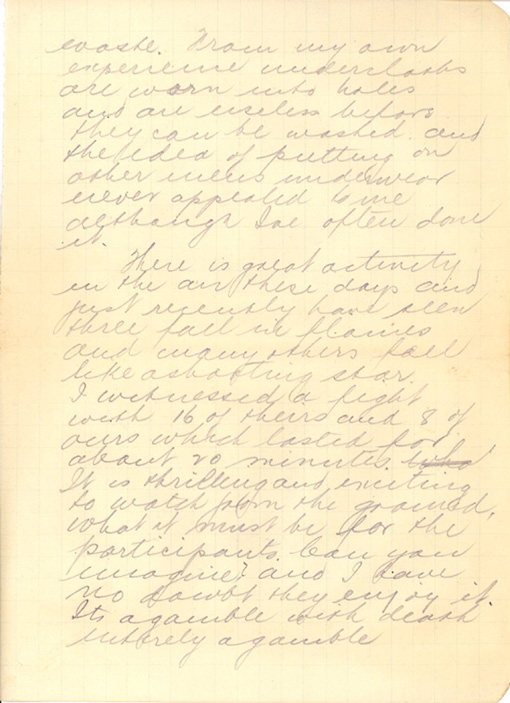 waste. From my own
experience underclothes
are worn into holes
and are useless before
they can be washed and
the idea of putting on
other mens underwear
never appealed to me
although Ive often done
it.
There is great activity
in the air these days and
just recently have seen
three fall in flames
and many others fall
like a shooting star.
I witnessed a fight
with 16 of theirs and 8 of
ours which lasted for
about 20 minutes.
It is thrilling and exciting
to watch from the ground,
what it must be for the
participants. Can you
imagine? and I have
no doubt they enjoy it.
Its a gamble with death
entirely a gamble